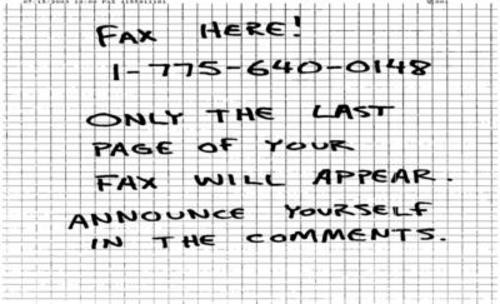 FAX HERE!
1-775-640-0148
ONLY THE LAST
PAGE OF YOUR
FAX WILL APPEAR.
ANNOUNCE YOURSELF
IN THE COMMENTS.